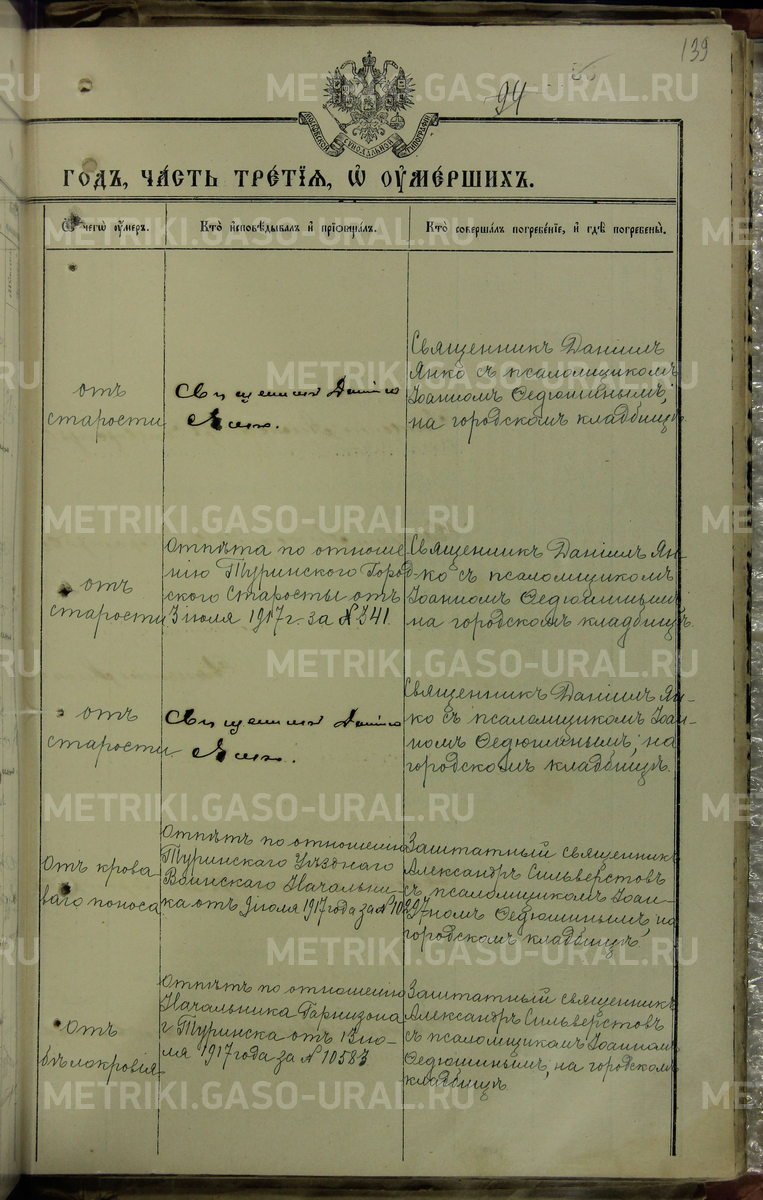 139
94
МОСКОВСКОЙ СѴНОДАЛЬНОЙ ТИПОГРАФІИ
ГОДЪ, ЧА́СТЬ ТРЕ́ТІЯ, Ѿ ОУ҆МЕ́РШИХЪ.
Ѿ чегѡ̀ оу҆́меръ.
Кто̀ и҆сповѣ́дывалъ и҆ прїѡбща́лъ.
Кто̀ соверша́лъ погребе́нїе, и҆ гдѣ̀ погребены̀.
отъ
старости
Священникъ Даніил
Янко.
Священникъ Даніилъ
Янко съ псаломщикомъ
Іоанномъ Ѳедюшинымъ,
на городскомъ кладбищѣ
отъ
старости
Отпѣта по отноше-
нію Туринского Город-
ского Старосты отъ
3 іюля 1917 г. за № 341.
Священникъ Даніилъ Ян-
ко съ псаломщикомъ
Іоанномъ Ѳедюшинымъ
на городскомъ кладбищѣ.
отъ
старости
Священникъ Даніил
Янко.
Священникъ Даніилъ Ян-
ко съ псаломщикомъ Іоан-
номъ Ѳедюшинымъ, на
городскомъ кладбищѣ.
Отъ крова-
ваго поноса
Отпѣтъ по отношенію
Туринскаго Уѣзднаго
Воинскаго Начальни-
ка отъ 9 іюля 1917 года за № 10297
Заштатный священникъ
Александръ Сильверстовъ
съ псаломщикомъ Іоан-
номъ Ѳедюшинымъ, на
городскомъ кладбищѣ,
Отъ
бѣлокровія
Отпѣтъ по отношенію
Начальника Гарнизона
г. Туринска отъ 13 ію-
ля 1917 года за № 10583
Заштатный священникъ
Александръ Сильверстовъ
съ псаломщикомъ Іоанномъ
Ѳедюшинымъ, на городскомъ
кладбищѣ.
METRIKI.GASO-URAL.RU